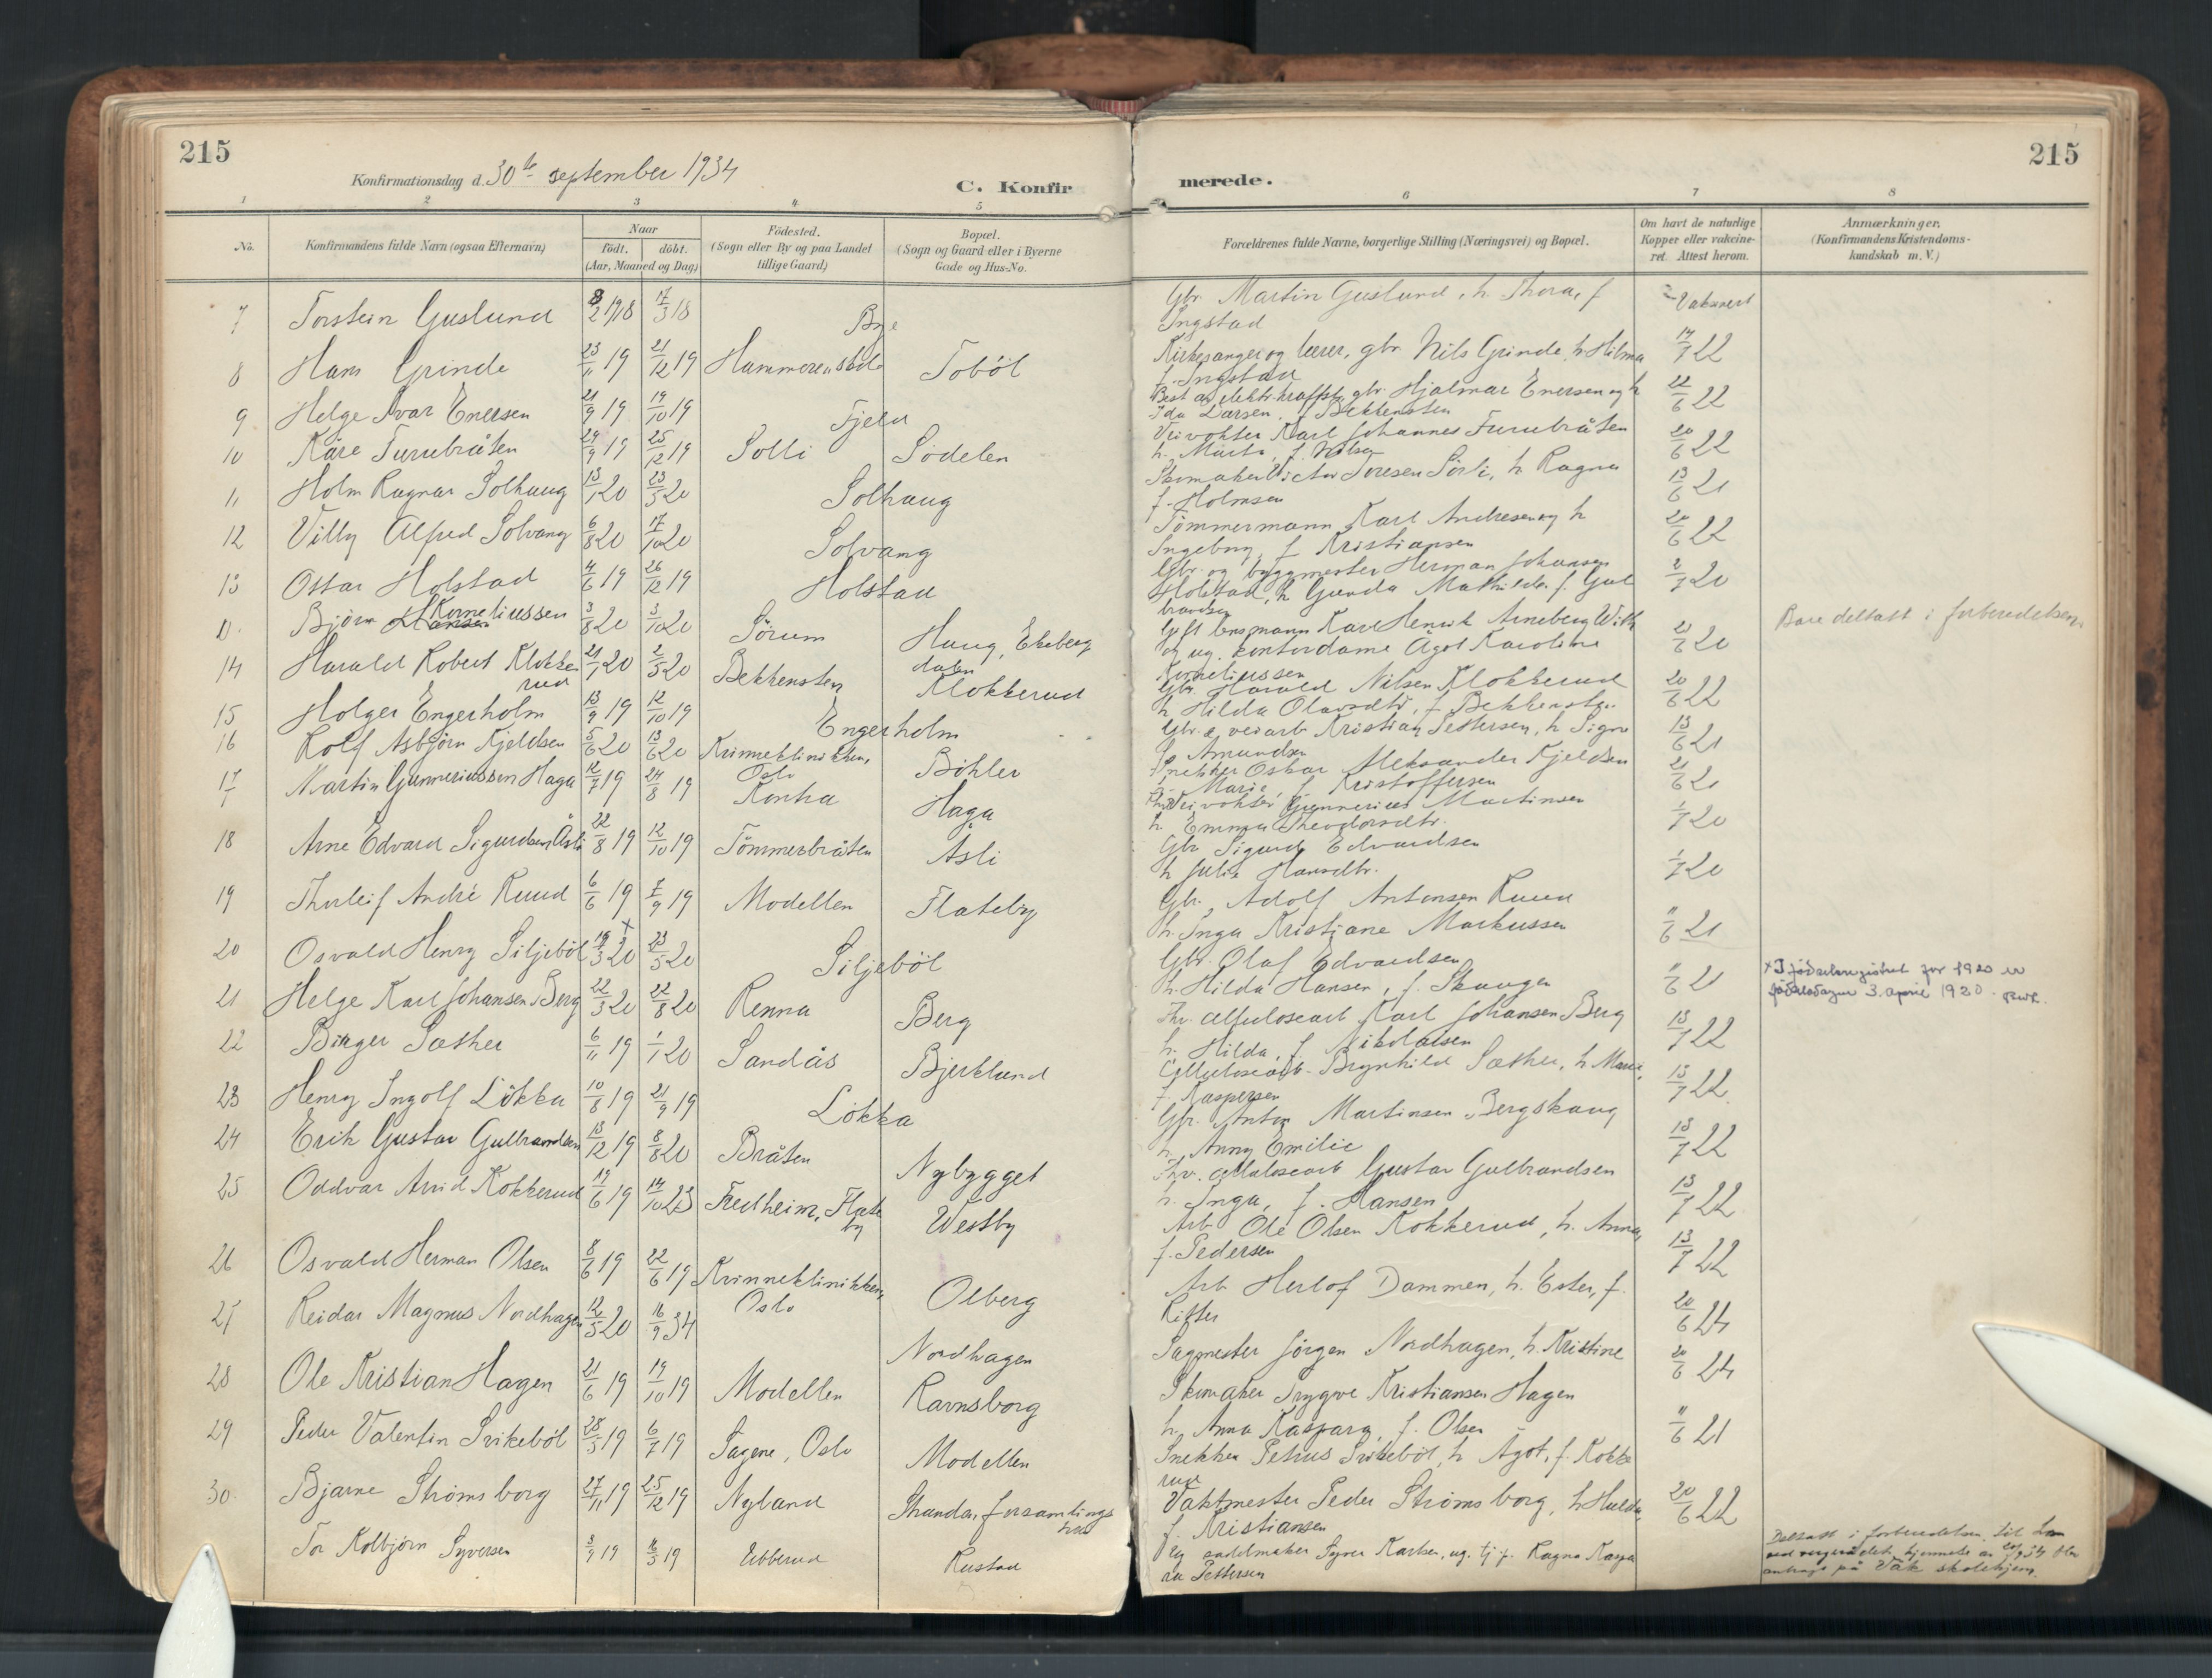 215
215
Konfirmationsdag d. 30te september 1934
C. Konfir
merede.
1 2 3 4 5 6 7 8
No.
Konfirmandens fulde Navn (ogsaa Efternavn)
Naar
født. døbt.
(Aar, Maaned og Dag)
Fødested.
(Sogn eller By og paa Landet
tillige Gaard)
Bopæl.
(Sogn og Gaard eller i Byerne
Gade og Hus-No.
Forældrenes fulde Navne, borgerlige Stilling (Næringsvei) og Bopæl.
Om havt de naturlige
Kopper eller vakcine-
ret. Attest herom.
Anmærkninger.
(Konfirmandens Kristendoms-
kundskab m. V.)
7 Torstein Guslund 8/2 1918 17/3 18 Bye Gbr. Martin Guslund, h. Thora, f. Ingstad Vaksinert
8 Hans Grinde 23/11 19 21/12 19 Tobøl Kirkesanger og lærer, gbr. Nils Grinde, h. Hilma f. Ingstad 14/7 22
9 Helge Ivar Enersen 21/9 19 19/10 19 Fjeld gbr. Hjalmar Enersen og h Ida Larsen, f. Bekkensten 22/6 22
10 Kåre Furubråten 24/9 19 25/12 19 Solli Sødelen Veivokter Karl Johannes Furubråten h. Marta, f. Nilsen 20/6 22
11 Holm Ragnar Solhaug 13/1 20 23/5 20 Solhaug Skomaker Victor Toresen Sørli, h. Ragna f. Holmsen 13/6 21
12 Villy Alfred Solvang 6/8 20 17/10 20 Solvang Tømmermann Karl Andresen og h Ingeborg, f. Kristiansen 20/6 22
13 Ostar Holstad 4/6 19 26/12 19 Holstad Gbr. og byggmester Herman Johansen Holstad, h Gunda Mathilde f. Gulbrandsen 2/7 20
D. Bjørn Hansen Korneliussen 3/8 20 3/10 20 Sørum Haug, Ekebergdalen Gift lensmann Karl Henrik Arneberg With og ug. kontordame Ågot Karoline Korneliussen 21/6 20 Bare deltatt i forberedelsen
14 Harald Robert Klokkerud 21/1 20 2/5 20 Bekkensten Klokkerud Gbr. Harald Nilsen Klokkerud h Hilda Olavsdtr, f. Bekkensten 20/6 22
15 Holger Engerholm 13/9 19 12/10 19 Engerholm Gbr. & veiarb Kristian Pettersen, h Signe f. Amundsen 13/6 21
16 Rolf Asbjørn Kjeldsen 5/6 20 13/6 20 Kvinneklinikken, Oslo Böhler Snekker Oskar Aleksander Kjeldsen h. Marie, f. Kristoffersen 21/6 21
17 Martin Gunneriussen Haga 12/7 19 24/8 19 Kontra Haga Veivokter Gunnerius Martinsen h. Emma Theodorsdtr. 1/7 20
18 Arne Edvard Sigurdsen Åsli 22/8 19 12/10 19 Tømmerbråten Åsli Gbr Sigurd Edvardsen h Julie Hansdtr. 1/7 20
19 Thorleif André Ruud 6/6 19 7/9 19 Modellen Flateby Gbr. Adolf Antonsen Ruud h. Inga Kristiane Markussen 11/6 21
20 Osvald Henry Siljebøl 19/3 20 x 23/5 20 Siljebøl Gbr. Olaf Edvardsen h. Hilda Hansen, f. Skaugen 11/6 21 x I fødselsregistret for 1920 er fødselsdagen 3. april 1920.
21 Helge Karl Johansen Berg 22/3 20 22/8 20 Renna Berg Fhv. celulosearb Karl Johansen Berg h. Hilda, f. Nikolaisen 13/7 22
22 Birger Sæther 6/11 19 1/1 20 Sandås Bjerklund Cellulosearb. Brynhild Sæther, h Marie, f. Kaspersen 13/7 22
23 Henry Ingolf Løkka 10/8 19 21/9 19 Løkka Gbr. Anton Martinsen Bergskaug h. Anny Emilie 13/7 22
24 Erik Gustav Gulbrandsen 13/12 19 8/8 20 Bråten Nybygget Fhv. celulosearb Gustav Gulbrandsen h. Inga, f. Hansen 13/7 22
25 Oddvar Arvid Kokkerud 19/6 19 14/10 23 Fredheim, Flateby Westby Arb Ole Olsen Kokkerud, h. Anna, f. Pedersen 13/7 22
26 Osvald Herman Olsen 8/6 19 22/6 19 Kvinneklinikken Oslo Olberg Arb Herlof Dammen, h. Ester, f. Kitter 20/6 24
27 Reidar Magnus Nordhagen 12/5 20 16/9 34 Nordhagen Sagmester Jørgen Nordhagen, h. Kristine 20/6 24
28 Ole Kristian Hagen 21/6 19 19/10 19 Modellen Ravnsborg Skomaker Trygve Kristiansen Hagen h. Anna Kaspara, f. Olsen 11/6 21
29 Peder Valentin Svikebøl 28/3 19 6/7 19 Sagene, Oslo Modellen Snekker Petrus Svikebøl, h Ågot, f. Kokkerud
30. Bjarne Strømsborg 27/11 19 25/12 19 Nyland Stranda, forsamlingshus Vaktmester Peder Strømsborg, h Hulda, f. Kristiansen 20/6 22
Tor Kolbjørn Syversen 3/9 19 19 Ebberud Rustad salmaker Syver Karlsen, ug. tj.p. Ragna Kaspara Pettersen Deltatt i forberedelsen på Våk skolehjem.